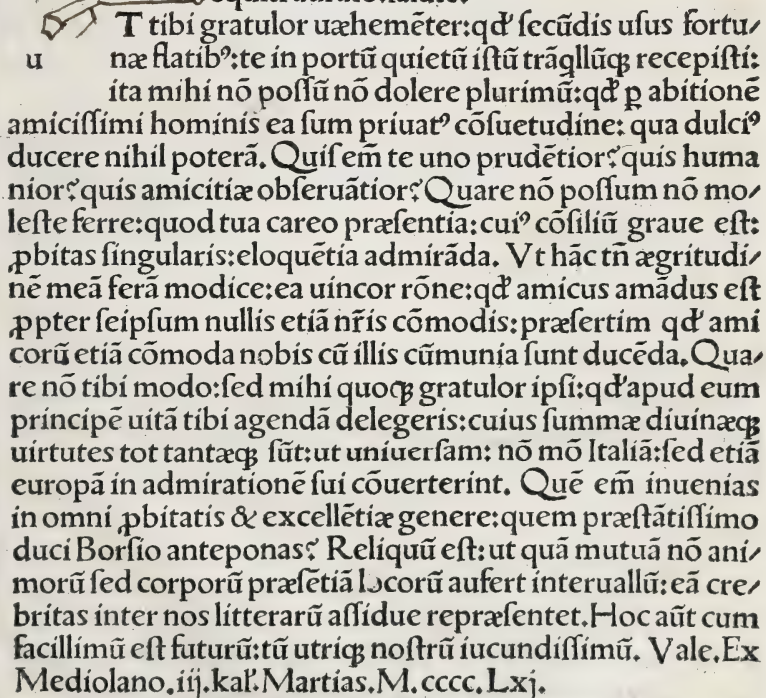 T tibi gratulor uæhemẽter:qđ ſecũdis uſus fortu/
u næ flatibꝰ:te in portũ quietũ iſtũ trãqllũqꝫ recepiſti:
ita mihi nõ poſſũ nõ dolere plurimũ:qđ ꝑ abitionẽ
amiciſſimi hominis ea ſum priuatꝰ cõſuetudine: qua dulciꝰ
ducere nihil poterã. Quiſ em̃ te uno prudẽtior? quis huma
nior? quis amicitiæ obſeruãtior? Quare nõ poſſum nõ mo/
leſte ferre:quod tua careo præſentia:cuiꝰ cõſiliũ graue eſt:
ꝓbitas ſingularis:eloquẽtia admirãda. Vt hãc tñ ægritudi/
nẽ meã ferã modice:ea uincor rõne:qđ amicus amãdus eſt
ꝓpter ſeipſum nullis etiã nr̃is cõmodis:præſertim qđ ami
corũ etiã cõmoda nobis cũ illis cũmunia ſunt ducẽda. Qua/
re nõ tibi modo:ſed mihi quoqꝫ gratulor ipſi:qđ apud eum
principẽ uitã tibi agendã delegeris:cuius ſummæ diuinæqꝫ
uirtutes tot tantæqꝫ ſũt:ut uniuerſam: nõ mõ Italiã:ſed etiã
europã in admirationẽ ſui cõuerterint. Quẽ em̃ inuenias
in omni ꝓbitatis & excellẽtiæ genere:quem præſtãtiſſimo
duci Borſio anteponas? Reliquũ eſt: ut quã mutuã nõ ani/
morũ ſed corporũ præſẽtiã locorũ aufert interuallũ: eã cre/
britas inter nos litterarũ aſſidue repræſentet. Hoc aũt cum
facillimũ eſt futurũ:tũ utriqꝫ noſtrũ iucundiſſimũ. Vale. Ex
Mediolano. iij. kal̕. Martias. M. cccc. Lxj.